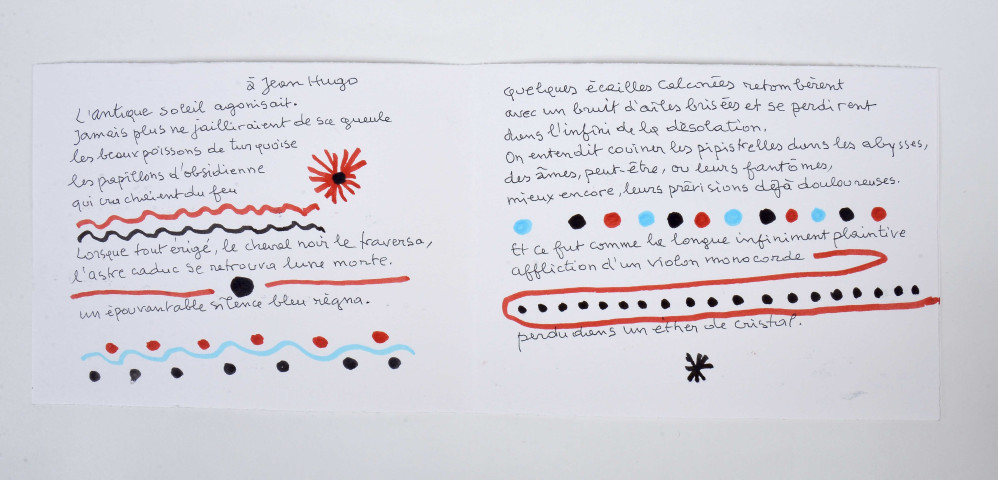 à Jean Hugo
L'antique soleil agonisait.
Jamais plus ne jailliraient de sa gueule
les beaux poissons de turquoise
les papillons d'obsidienne
qui crachaient du feu
Lorsque tout érigé, le cheval noir le traversa,
l'astre caduc se retrouva lune morte.
un épouvantable silence bleu règna.
quelques écailles calcinées retombèrent
avec un bruit d'ailes brisées et se perdirent
dans l'infini de la désolation.
On entendit couiner les pipistrelles dans les abysses,
des âmes, peut-être, ou leurs fantômes,
mieux encore, leurs prévisions déjà douloureuses.
Et ce fut comme la longue infiniment plaintive
affliction d'un violon monocorde
perdu dans un éther de cristal.